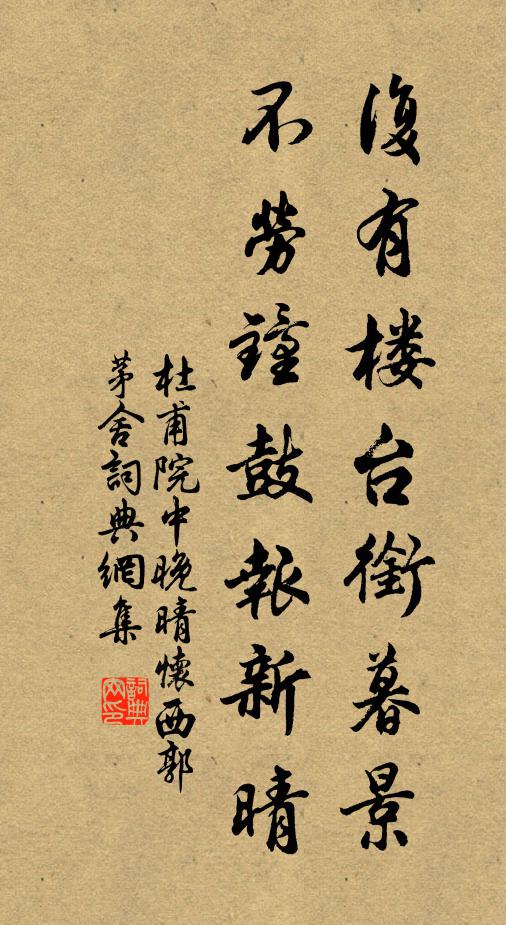 復有楼台銜暮景
不勞鐘鼓報新晴
杜甫院中晚晴懷西郭
茅舍詞典網集
詞典
网印